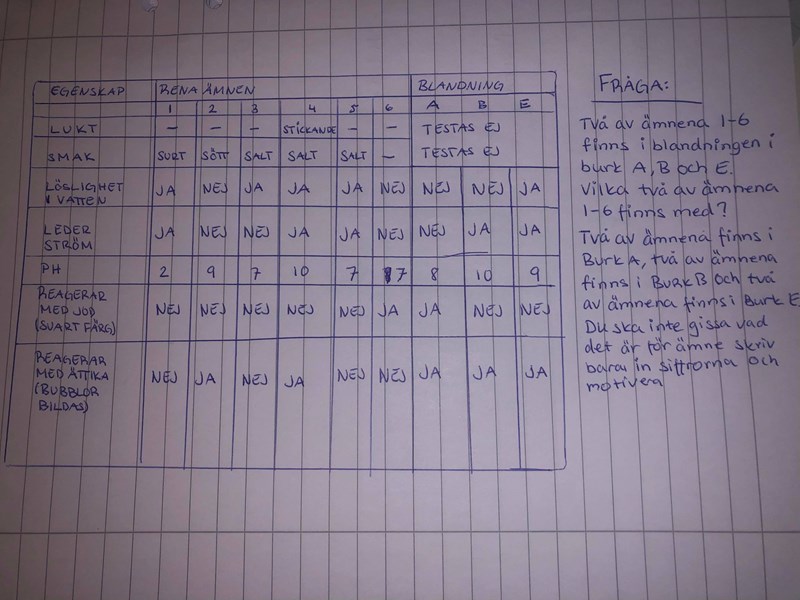 EGENSKAP RENA ÄMNEN BLANDNING
1 2 3 4 5 6 A B E
LUKT - - - STICKANDE - - TESTAS EJ
SMAK SURT SÖTT SALT SALT SALT - TESTAS EJ
LÖSLIGHET JA NEJ JA JA JA NEJ NEJ NEJ JA
I VATTEN
LEDER JA NEJ NEJ JA JA NEJ NEJ JA JA
STRÖM
PH 2 9 7 10 7 7 8 10 9
REAGERAR
MED JOD NEJ NEJ NEJ NEJ NEJ JA JA NEJ NEJ
(SVART FÄRG)
REAGERAR
MED ÄTTIKA NEJ JA NEJ JA NEJ NEJ JA JA JA
(BUBBLOR
BILDAS)
FRÅGA:
Två av ämnena 1-6
finns i blandningen i
burk A, B och E.
Vilka två av ämnena
1-6 finns med?
Två av ämnena finns i
Burk A, två av ämnena
finns i Burk B och två
av ämnena finns i Burk E.
Du ska inte gissa vad
det är för ämne skriv
bara in siffrorna och
motivera